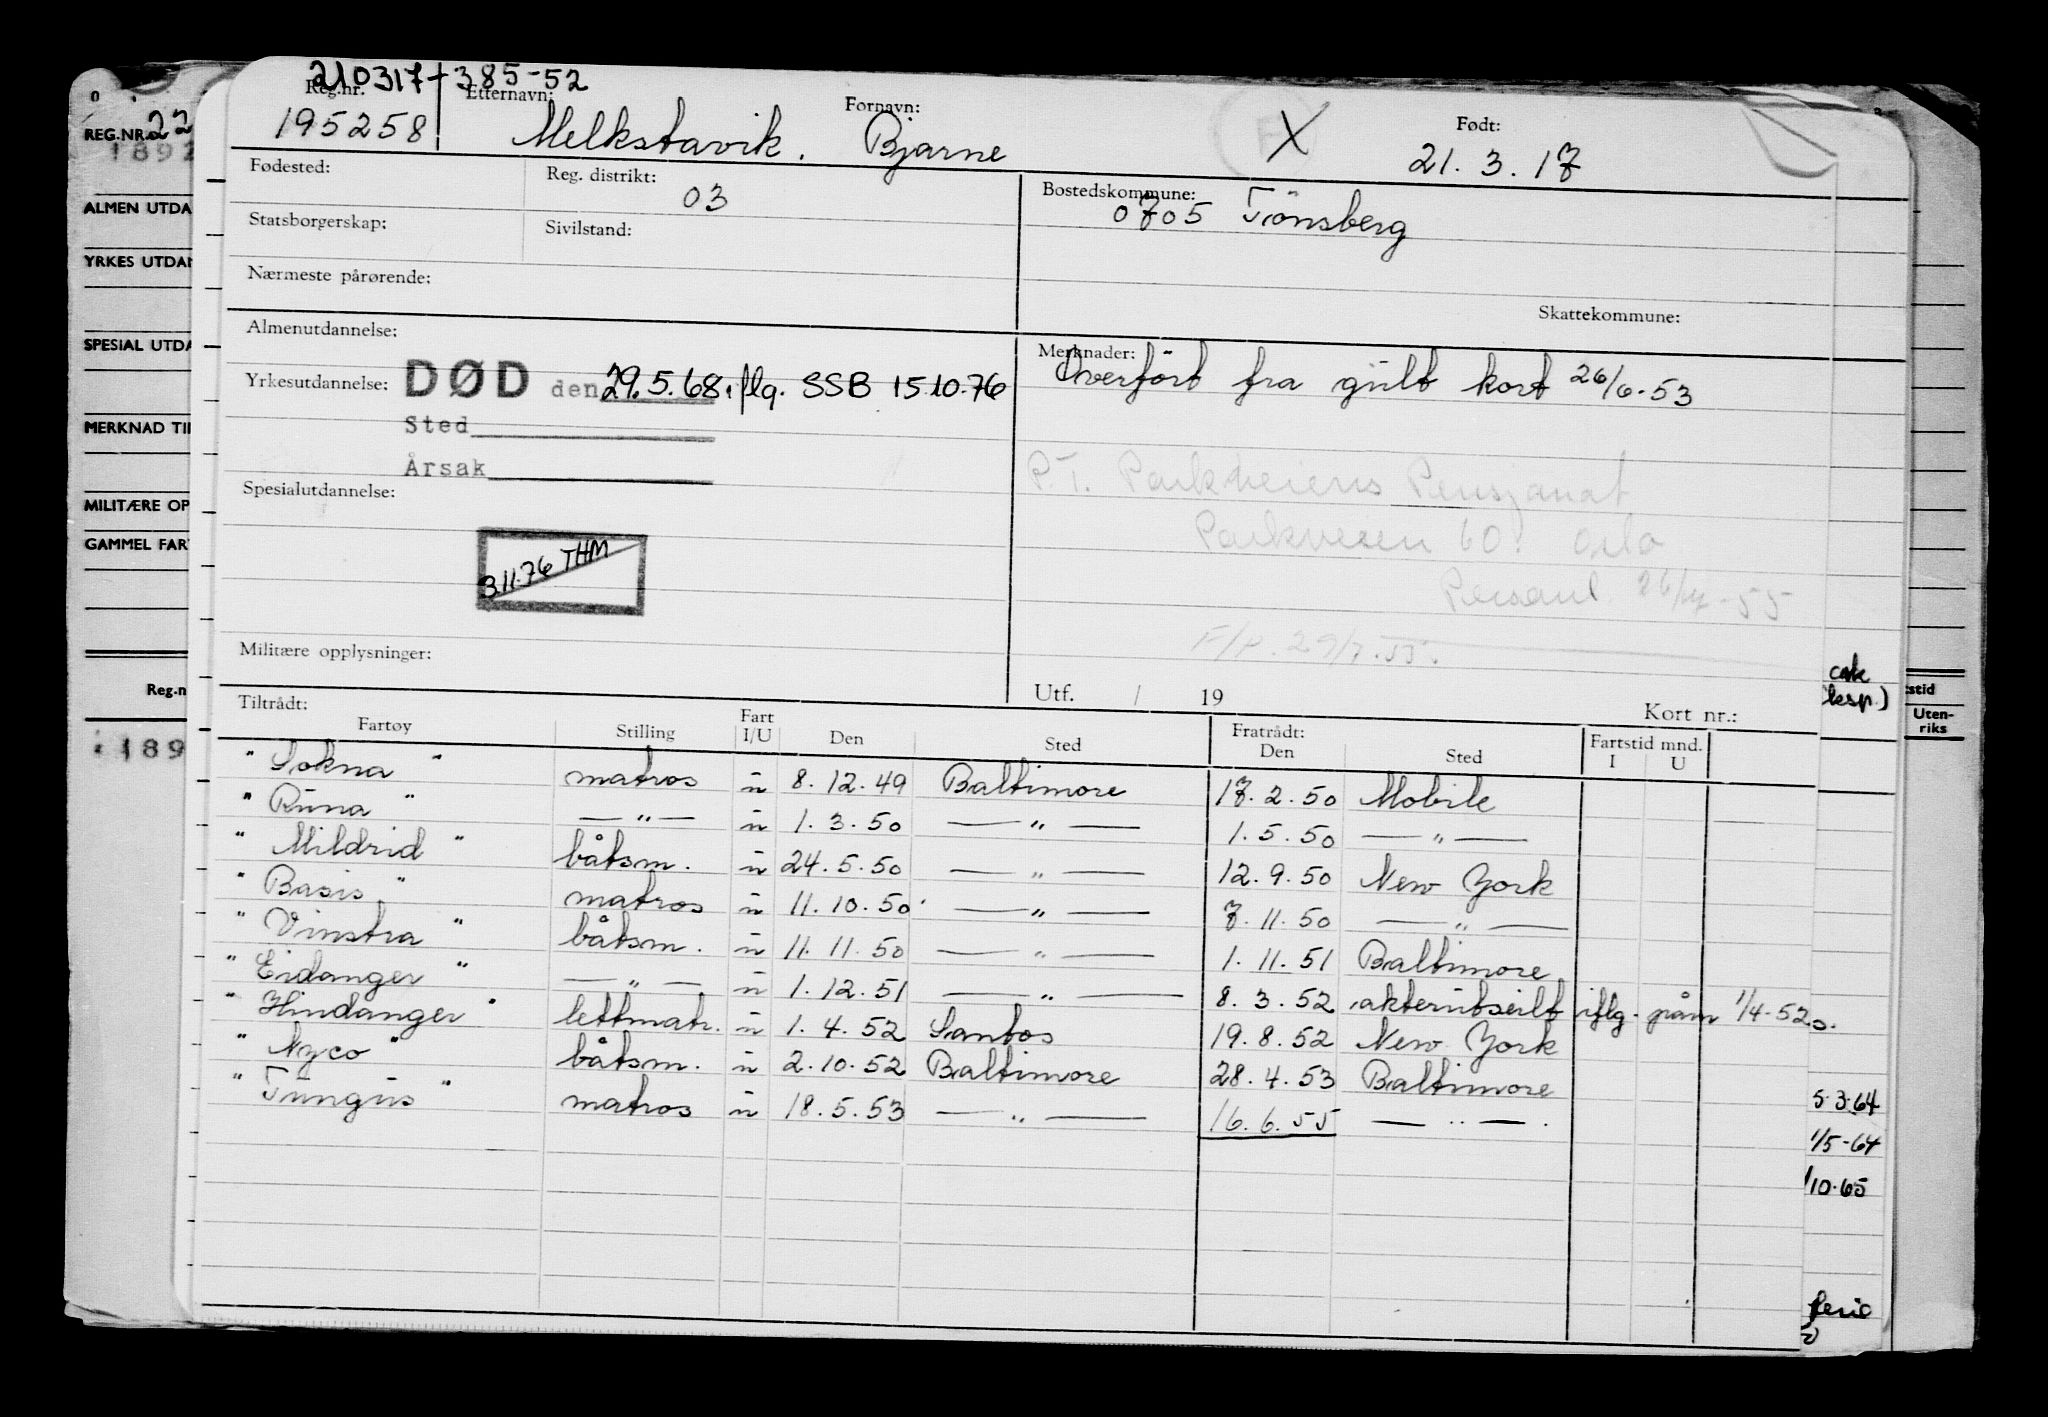 210317+385-52
Reg.nr. Etternavn: Fornavn: Født:
195258 Melkstavik. Bjarne X 21.3.17
Fødested: Reg. distrikt: 03 Bostedskommune: 0705 Tönsberg
Statsborgerskap: Sivilstand:
Nærmeste pårørende:
Skattekommune:
Almenutdannelse: Merknader: Overfört fra gult kort 26/6-53
Yrkesutdannelse: DØD den 29.5.68 iflg. SSB 15.10.76
Sted
Årsak
P.T. Parkveiens Pensjonat
Parkveien 60. Oslo
26/4-55
F/P. 29/7.55.
Spesialutdannelse:
3.11.76 THM
Militære opplysninger:
Utf. / 19 Kort nr.:
Tiltrådt: Fratrådt: Fartstid mnd.
Fartøy Stilling Fart I/U Den Sted Den Sted I U
"Sokna" matros u 8.12.49 Baltimore 17.2.50 Mobile
"Runa" —"— u 1.3.50 —"— 1.5.50 —"—
"Mildrid" båtsm. u 24.5.50 —"— 12.9.50 New York
"Basis" matros u 11.10.50 —"— 7.11.50 —"—
"Vinstra" båtsm. u 11.11.50 —"— 1.11.51 Baltimore
"Eidanger" —"— u 1.12.51 —"— 8.3.52 akterutseilt iflg. påm 1/4-52
"Hindanger" lettmatr. u 1.4.52 Santos 19.8.52 New York
"Nyco" båtsm. u 2.10.52 Baltimore 28.4.53 Baltimore
"Tungus" matros u 18.5.53 —"— 16.6.55 —"—.
REG.NR. 22
1892
ALMEN UTDA
YRKES UTDAN
SPESIAL UTDA
MERKNAD TI
MILITÆRE OP
GAMMEL FAR
Reg.n
189
stid
Uten-
riks
5.3.64
1/5-64
10.65